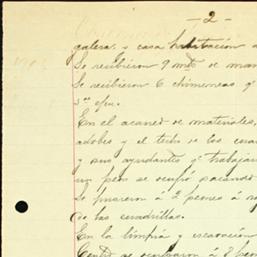 - 2 -
galera y casa habitación
Se recibieron 9 mts de man
Se recibieron 6 chimeneas
En el acarreo de materiales,
adobes y el techo de los cua
y sus ayudantes q. trabajar
un peon se ocupó sacando
Se pusieron á 2 peones á
de las cuadrillas.
En la limpia y escavación
Centro se ocuparon á 8 peon